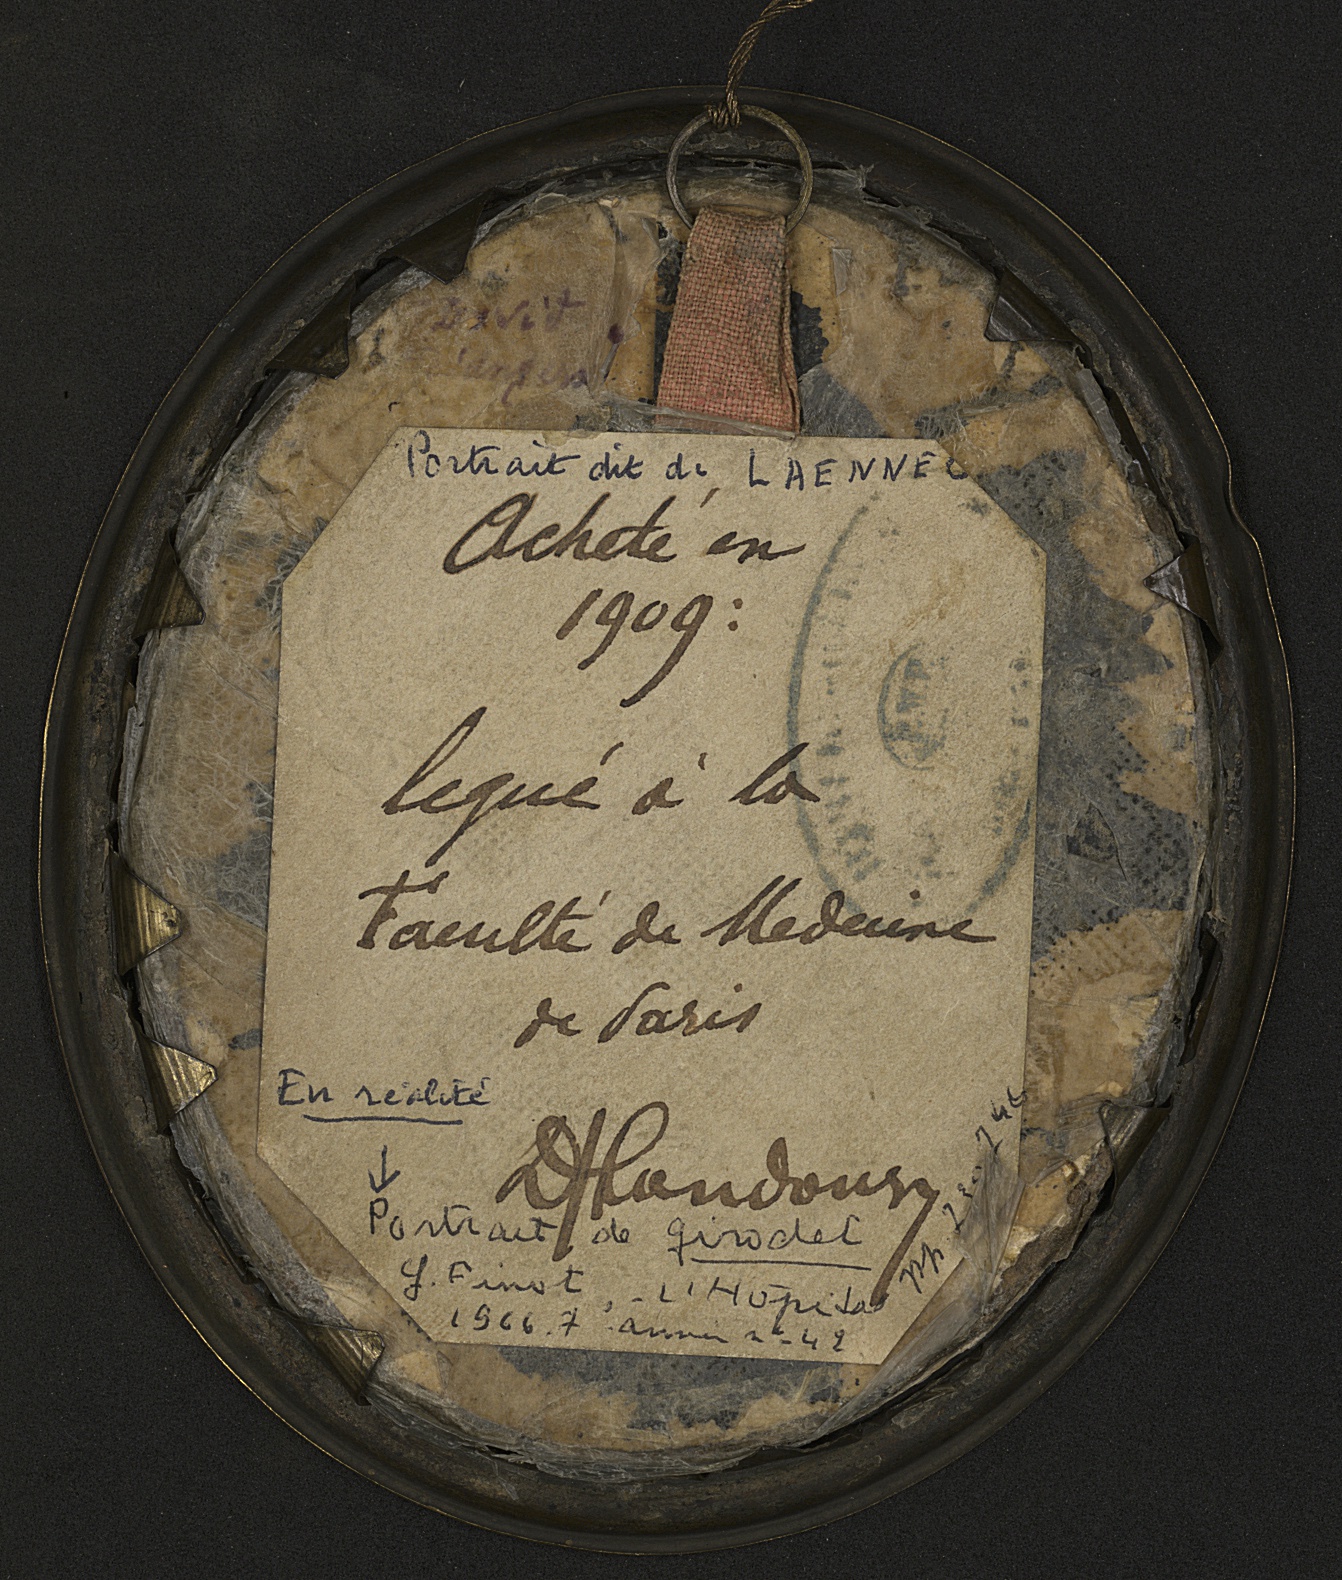 David
d'angers
Portrait dit de LAENNEC
Acheté en
1909:
legué à la
Faculté de Medecine
de Paris
En réalité
↓
DrLandouzy
Portrait de girodet
Finot, L'Hôpital
1966.7 année no 42
pp.